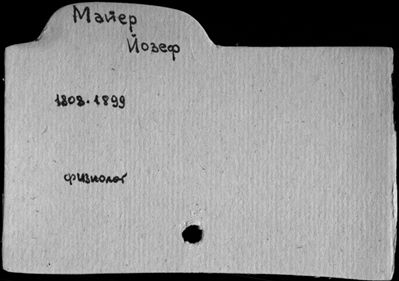 Майер
Йозеф
1808-1899
физиолог